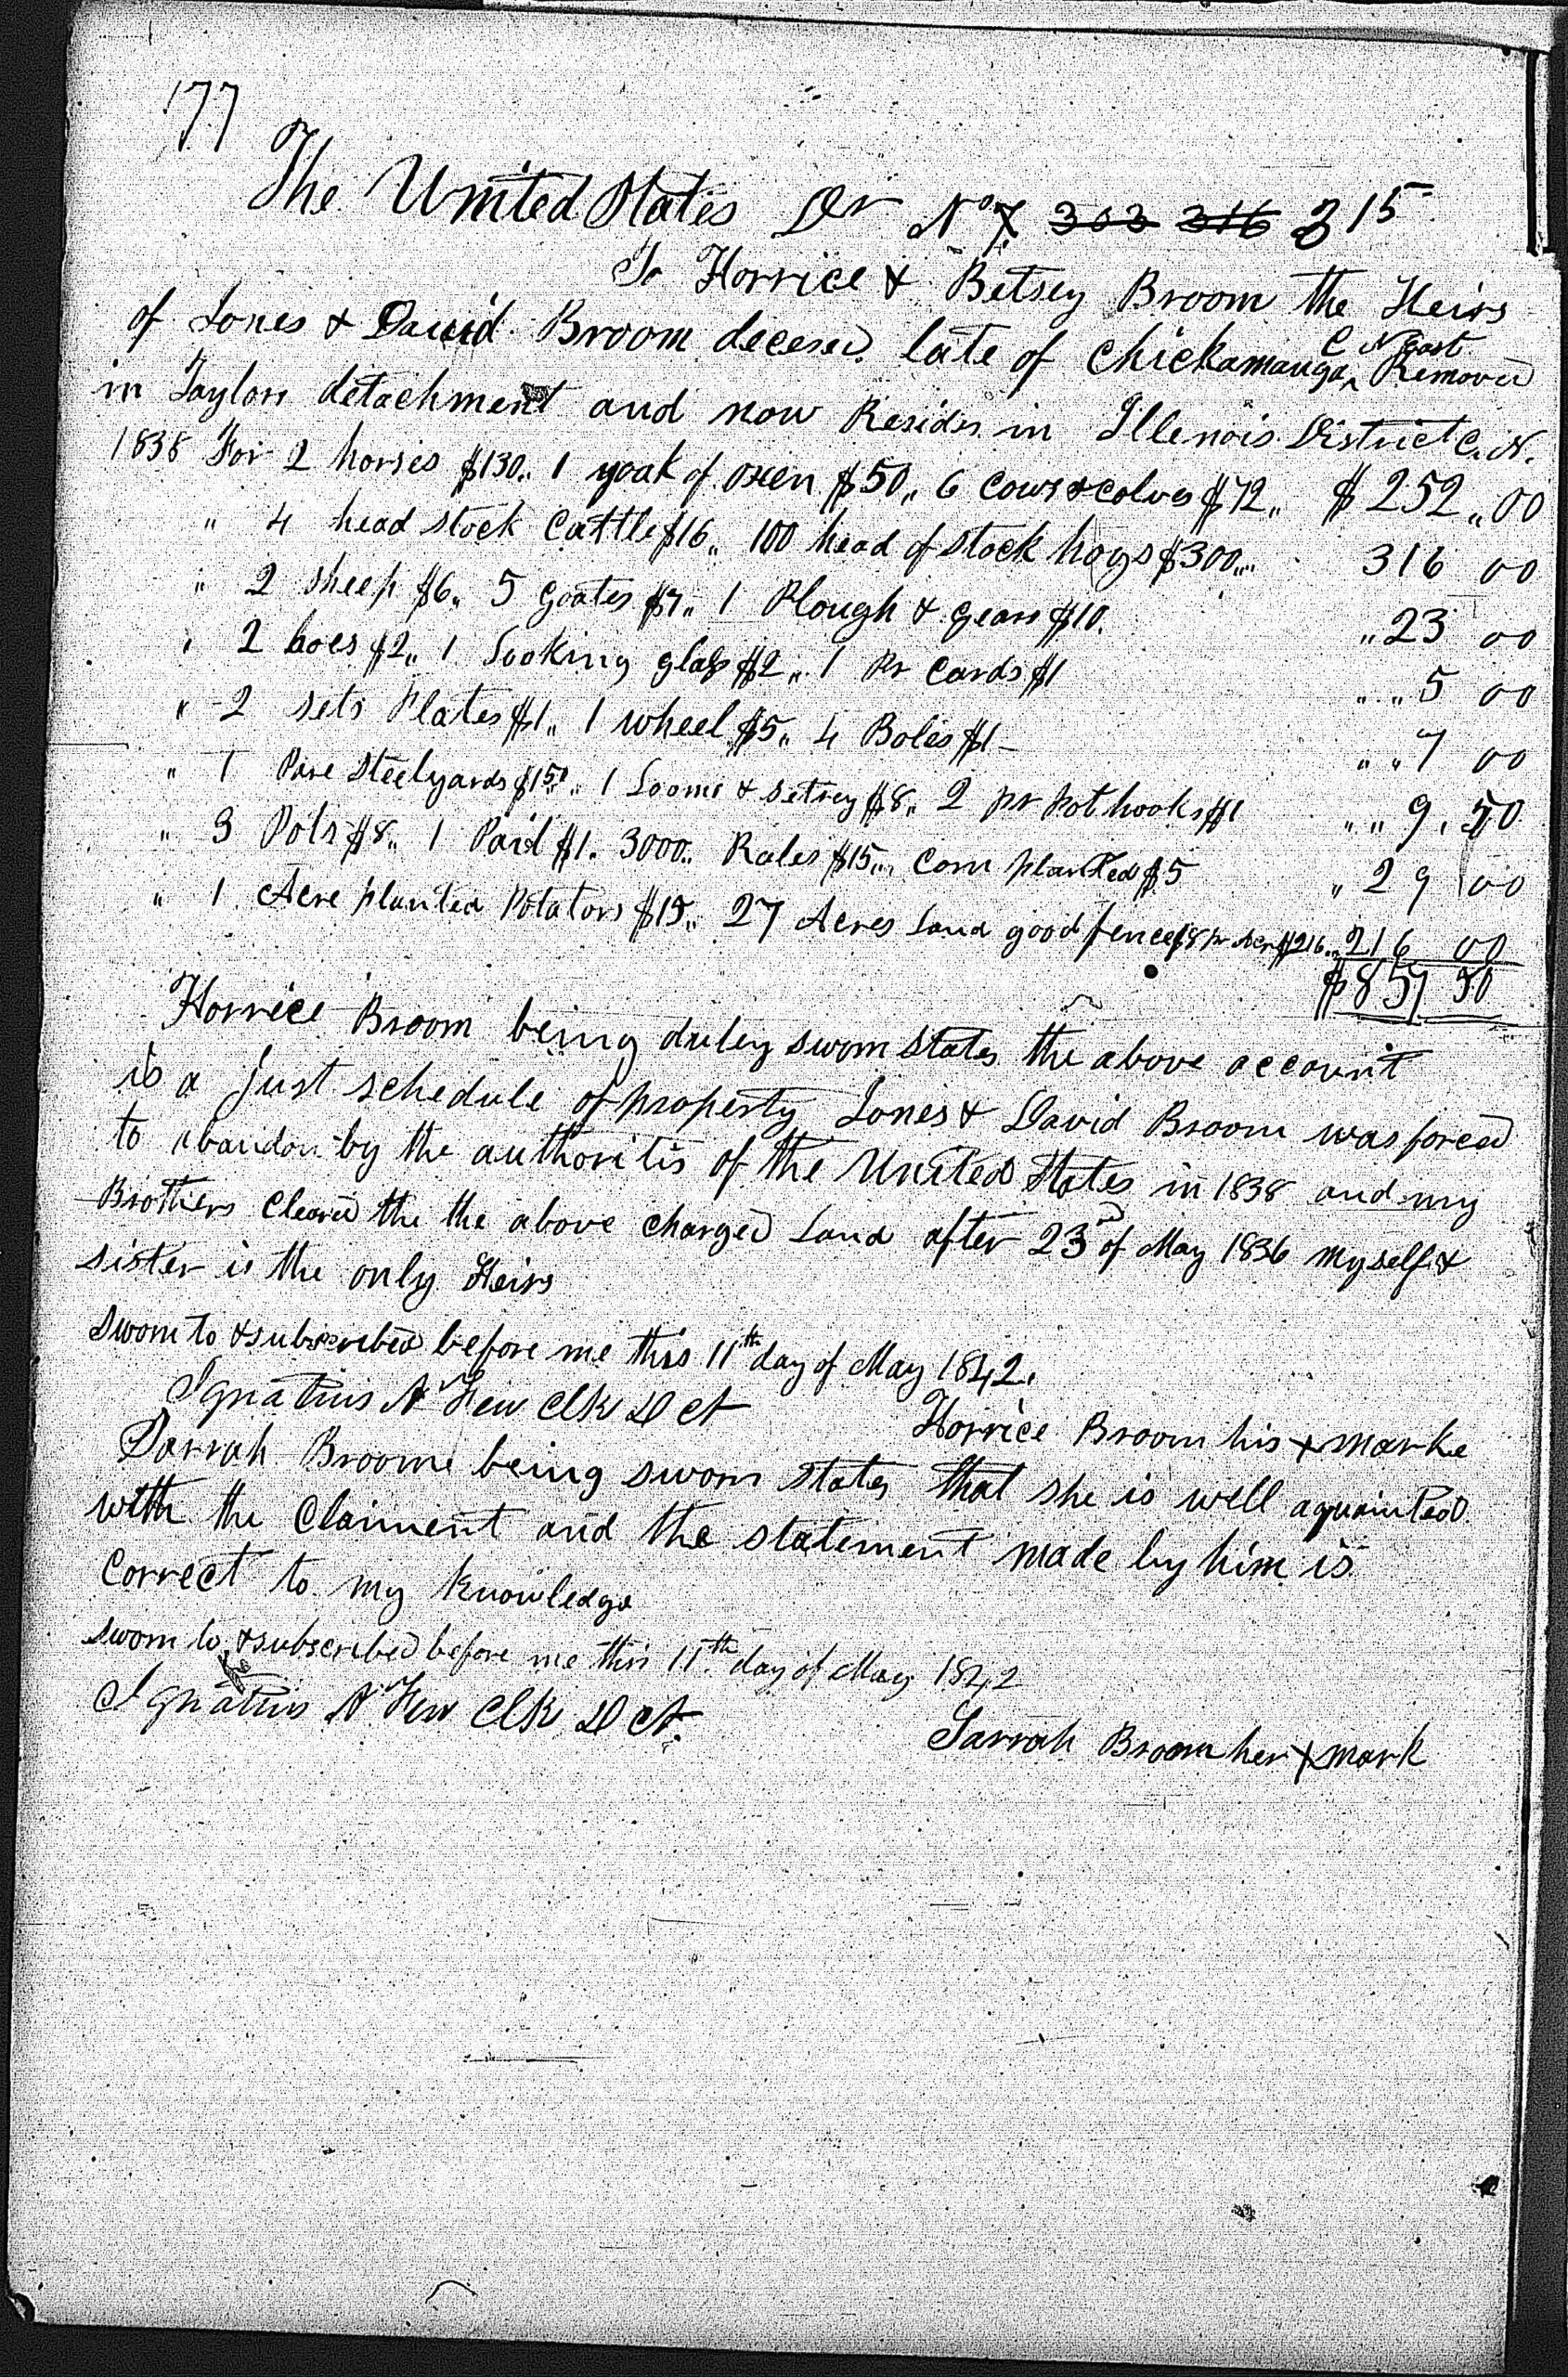 177
The United States Dr No 7 303 316 315
To Horrice & Betsey Broom the Heirs
of Jones & David Broom decesed late of Chickamauga C N East Removed
in Taylors detachment and now Resides in Illenois District C. N.
1838 For 2 horses $130.. 1 yoak of oxen $50,, 6 Cows & colves $72,, $252,,00
" 4 head stock Cattle $16,, 100 head of stock hogs $300,,.. 316 00
" 2 sheep $6,, 5 goates $7,, 1 Plough & gears $10. "23 00
" 2 hoes $2,, 1 Looking glass $2,, 1 Pr Cards $1 " "5 00
" 2 sets Plates $1,, 1 wheel $5,, 4 Boles $1- " "7 00
" 1 Pare Steelyards $1 50,, 1 Loome & setrey $8,, 2 pr Pot hooks $1 " "9.50
" 3 Pots $8,, 1 Paid $1. 3000.. Rales $15,,, Corn planted $5 "29 00
" 1 Acre planted Potators $15,, 27 Acres Land good fence $8 pr Acre $216,, 216 00
$857 50
Horrice Broom being duley sworn states the above account
is a just schedule of property Jones & David Broom was forced
to abandon by the authoritis of the United States in 1838 and my
Brothers Cleared the the above charged Land after 23rd of May 1836 myself &
sister is the only Heirs
Sworn to & subscribed before me this 11th day of May 1842.
Ignatius A Few Clk D Ct
Horrice Broom his x marke
Sarrah Broome being sworn states that she is well aquainted
with the Claiment and the statement made by him is
Correct to my knowledge
Sworn to & subscribed before me this 11th day of May 1842
Ignatius A Few Clk D Ct.
Sarrah Broom her x mark